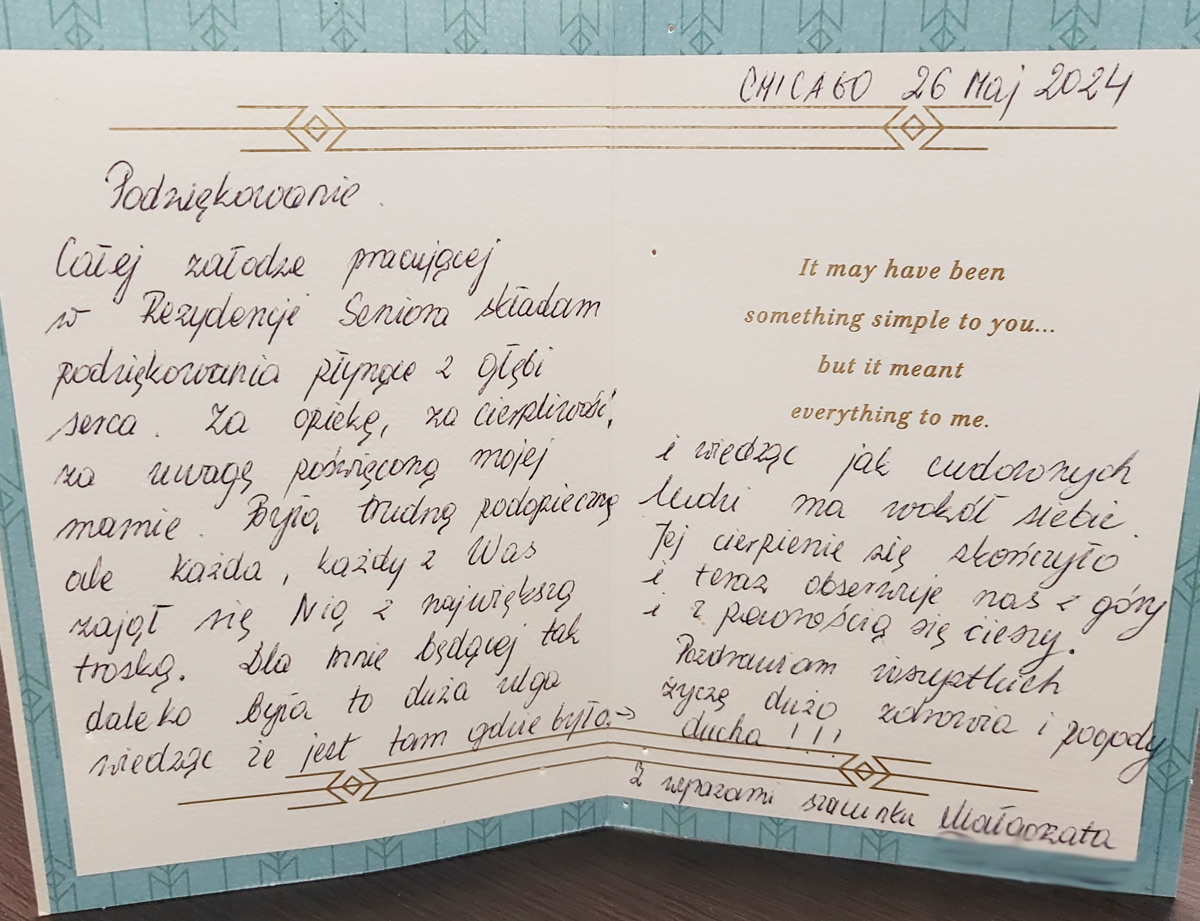 CHICAGO 26 Maj 2024
Podziękowanie.
Całej załodze pracującej
w Rezydencji Seniora składam
podziękowania płynące z głębi
serca. Za opiekę, za cierpliwość,
za uwagę poświęconą mojej
mamie. Była trudną podopieczną
ale każda, każdy z Was
zajął się Nią z największą
troską. Dla mnie będącej tak
daleko była to duża ulga
wiedząc że jest tam gdzie była →
It may have been
something simple to you...
but it meant
everything to me.
i wiedząc jak cudownych
ludzi ma wokół siebie.
Jej cierpienie się skończyło
i teraz obserwuje nas z góry
i z pewnością się cieszy.
Pozdrawiam wszystkich
życzę dużo zdrowia i pogody
ducha !!!
Z wyrazami szacunku Małgorzata